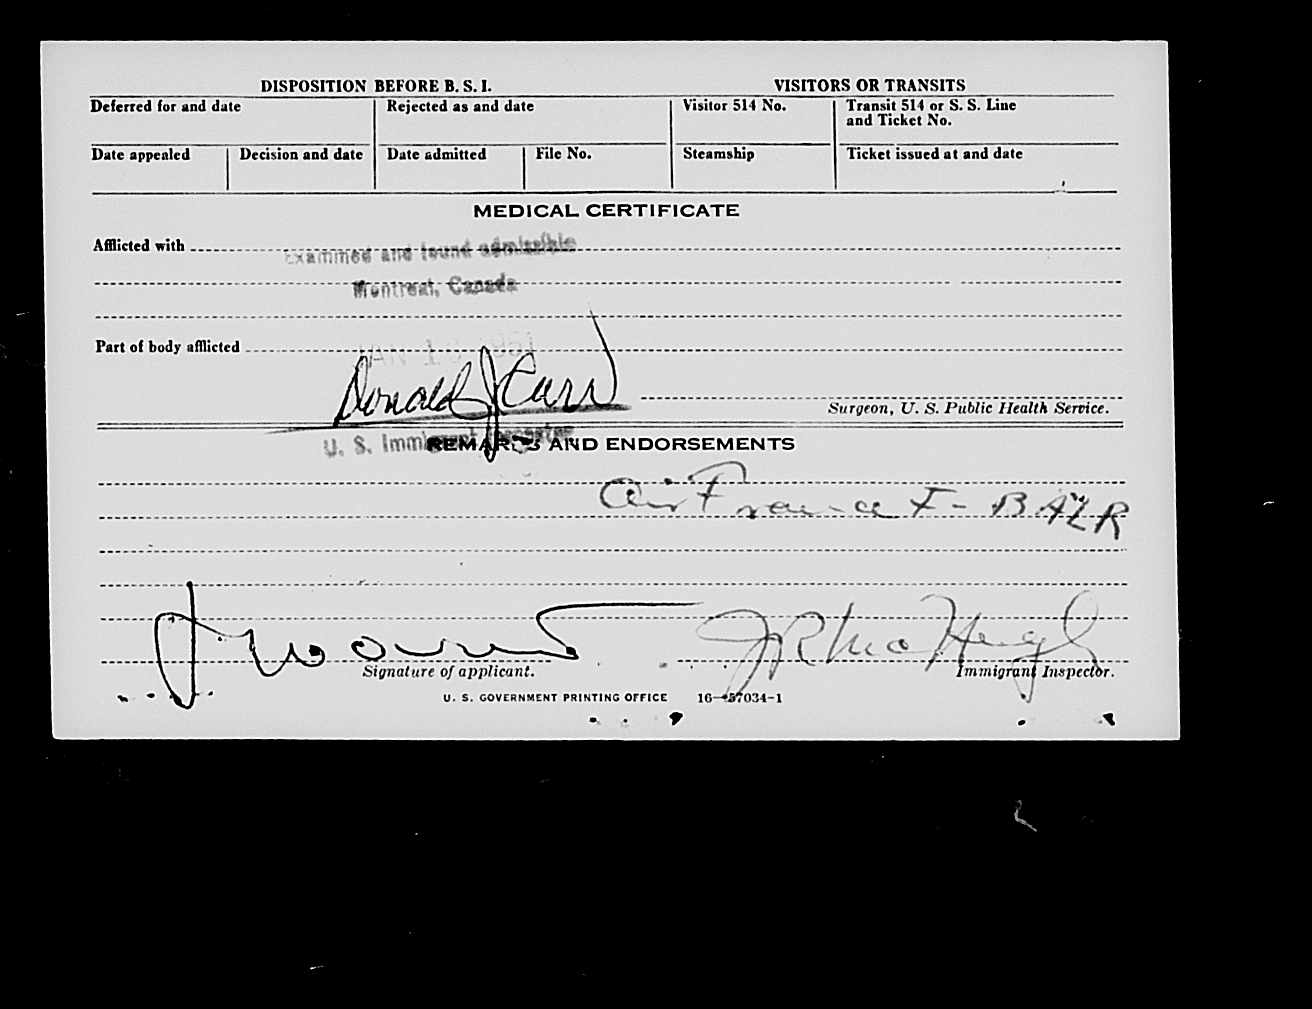 DISPOSITION BEFORE B. S. I.
VISITORS OR TRANSITS
Deferred for and date
Rejected as and date
Visitor 514 No.
Transit 514 or S. S. Line
and Ticket No.
Date appealed
Decision and date
Date admitted
File No.
Steamship
Ticket issued at and date
MEDICAL CERTIFICATE
Afflicted with
Examined and found admissible
Montreal, Canada
Part of body afflicted
Donald J Carr
Surgeon, U. S. Public Health Service.
U. S. Immigrant Inspector
REMARKS AND ENDORSEMENTS
Air France F-BAZR
Signature of applicant.
Immigrant Inspector.
U. S. GOVERNMENT PRINTING OFFICE 16—57034-1